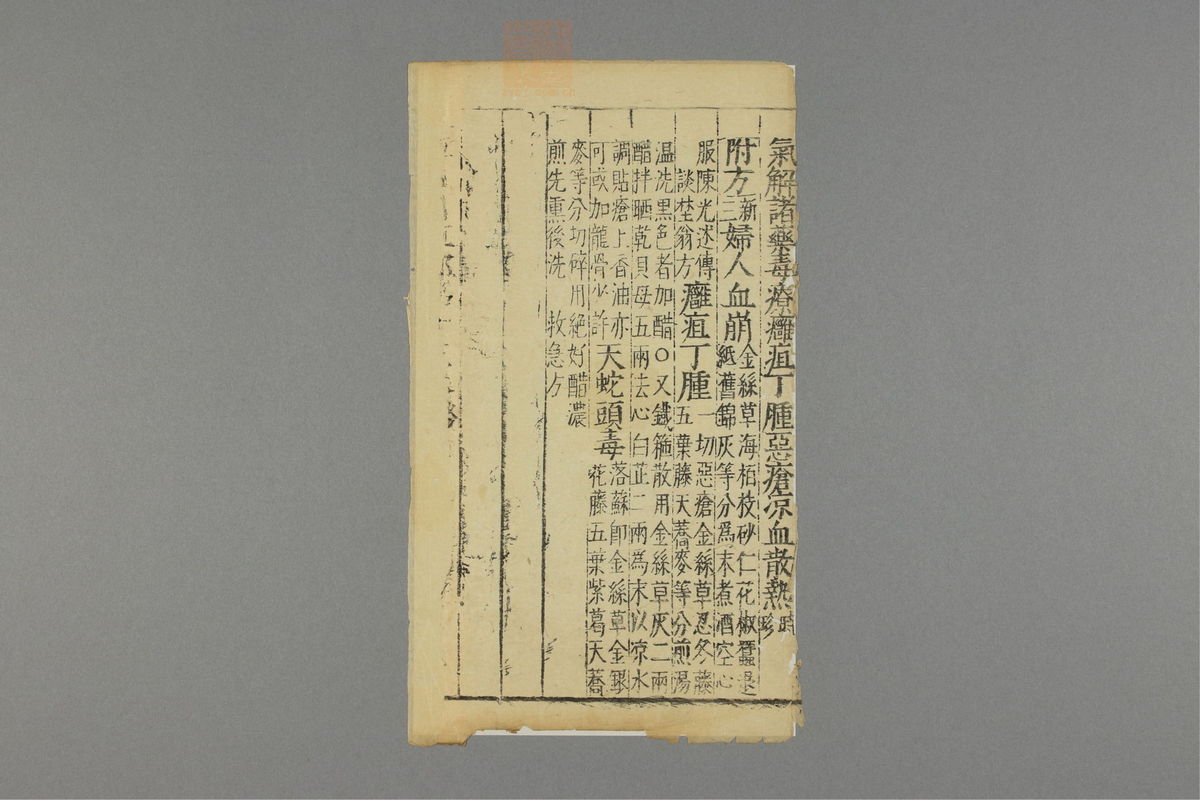 氣解諸藥毒療癰疽丁腫惡瘡凉血散熱時珍
附方新三婦人血崩金絲草海栢枝砂仁花椒蠶退
紙舊錦灰等分為末煮酒空心
服陳光述傳
談埜翁方癰疽丁腫一切惡瘡金絲草忍冬藤
五葉藤天蕎麥等分煎湯
温洗黑色者加醋〇又鐵箍散用金絲草灰二兩
醋拌晒乾貝母五兩去心白芷二兩為末以凉水
調貼瘡上香油亦
可或加龍骨少許天蛇頭毒落蘇即金絲草金銀
花藤五葉紫葛天蕎
麥等分切碎用絶好醋濃
煎先熏後洗 救急方